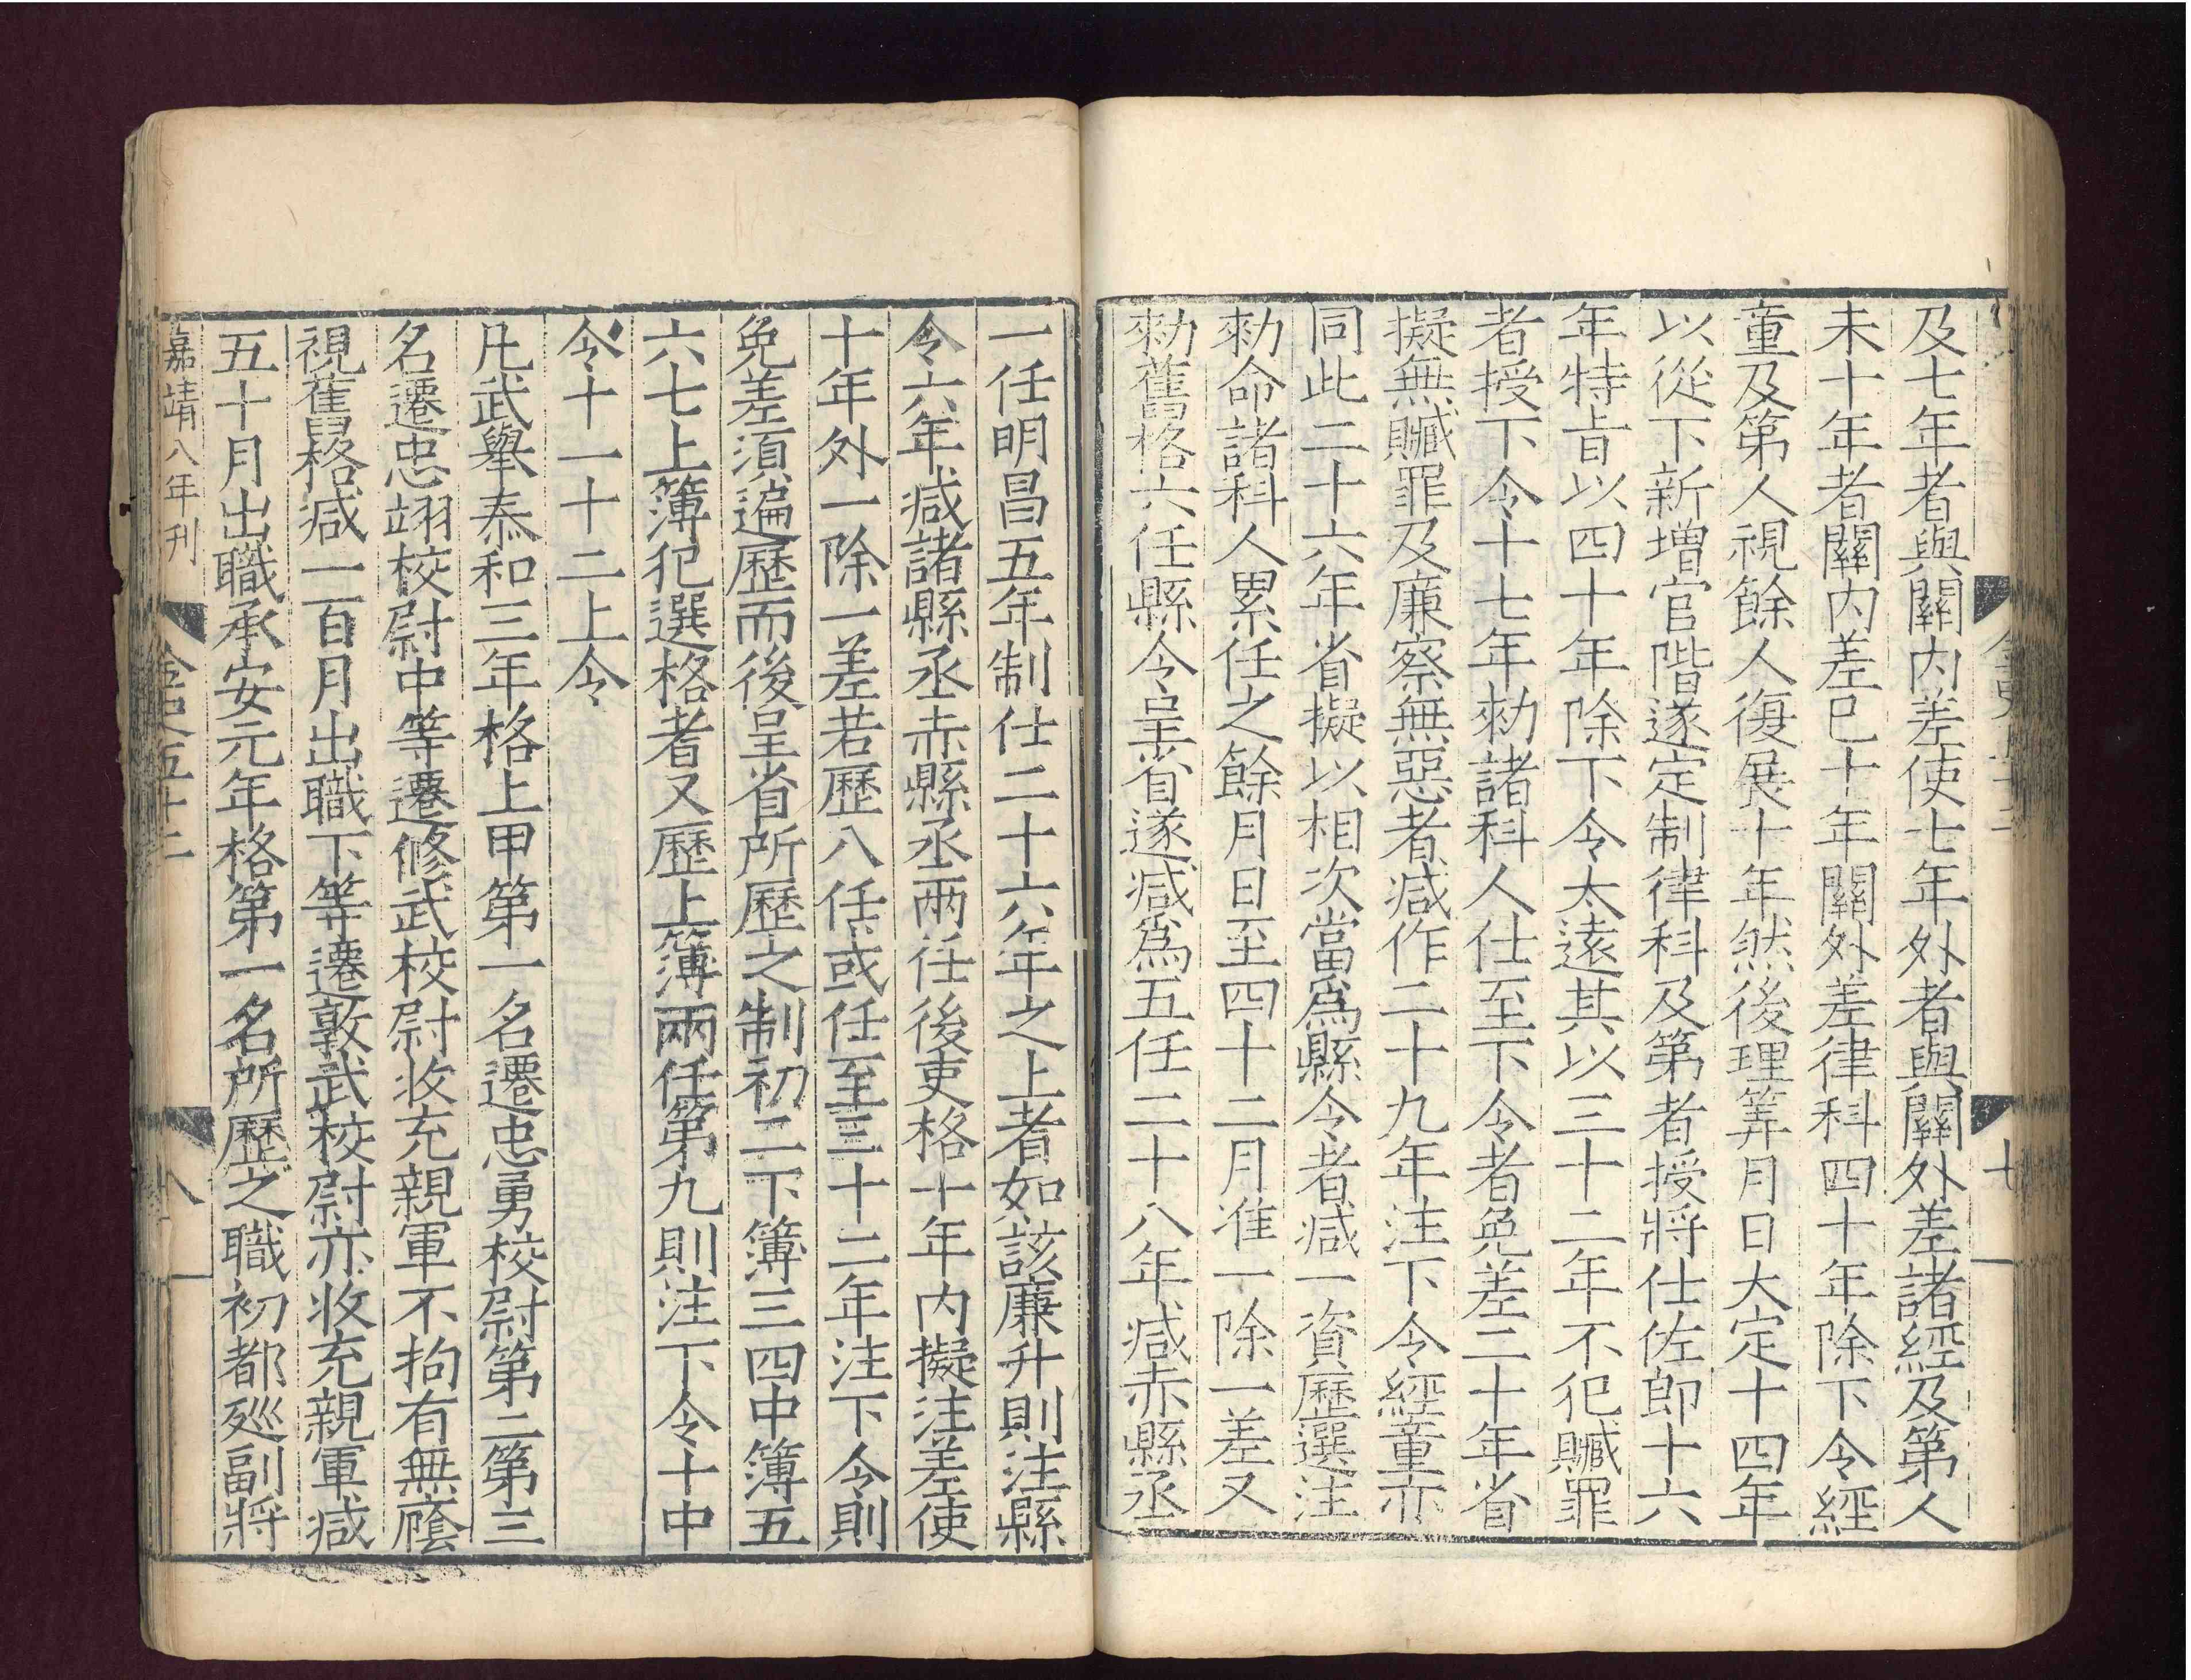 及七年者與關内差使七年外者與關外差諸經及第人
未十年者關内差巳十年關外差律科四十年除下令經
童及第人視餘人復展十年然後理筭月日大定十四年
以從下新增官階遂定制律科及第者授將仕佐郎十六
年特㫖以四十年除下令太遠其以三十二年不犯贓罪
者授下令十七年勑諸科人仕至下令者免差二十年省
擬無贓罪及廉察無惡者減作二十九年注下令經童亦
同此二十六年省擬以相次當爲縣令者减一資歷選注
勑命諸科人累任之餘月日至四十二月准一除一差又
勑舊格六任縣令呈省遂减爲五任二十八年减赤縣丞
一任明昌五年制仕二十六年之上者如該廉升則注縣
令六年减諸縣丞赤縣丞兩任後吏格十年内擬注差使
十年外一除一差若歷八任或任至三十二年注下令則
免差須遍歷而後呈省所歷之制初二下簿三四中簿五
六七上簿犯選格者又歷上簿兩任第九則注下令十中
令十一十二上令
凡武舉泰和三年格上甲第一名遷忠勇校尉第二第三
名遷忠翊校尉中等遷修武校尉收充親軍不拘有無廕
視舊格减一百月出職下等遷敦武校尉亦收充親軍减
五十月出職承安元年格第一名所歷之職初都巡副將
嘉靖八年刊
金史五十二
八